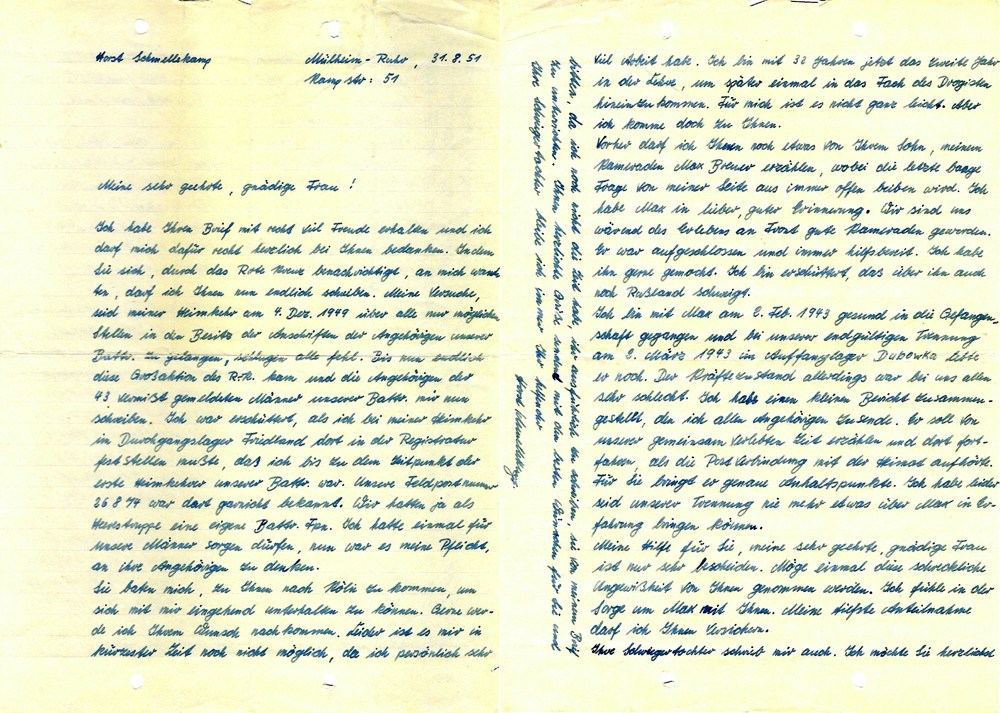 Horst Schmellekamp
Mülheim-Ruhr, 31.8.51
Kampstr: 51
Meine sehr geehrte, gnädige Frau!
Ich habe Ihren Brief mit recht viel Freude erhalten und ich
darf mich dafür recht herzlich bei Ihnen bedanken. Indem
Sie sich, durch das Rote Kreuz benachrichtigt, an mich wand-
ten, darf ich Ihnen nun endlich schreiben. Meine Versuche,
seid meiner Heimkehr am 4. Dez. 1949 über alle nur möglichen
Stellen in den Besitz der Anschriften der Angehörigen unserer
Battr. zu gelangen, schlugen alle fehl. Bis nun endlich
diese Großaktion des R.K. kam und die Angehörigen der
43 vermißt gemeldeten Männer unserer Battr. mir nun
schreiben. Ich war erschüttert, als ich bei meiner Heimkehr
in Durchgangslager Friedland dort in der Registratur
feststellen mußte, daß ich bis zu dem Zeitpunkt der
erste Heimkehrer unserer Battr. war. Unsere Feldpostnummer
26874 war dort garnicht bekannt. Wir hatten ja als
Heerestruppe eine eigene Battr. Fpn. Ich hatte einmal für
unsere Männer sorgen dürfen, nun war es meine Pflicht,
an ihre Angehörigen zu denken.
Sie baten mich, zu Ihnen nach Köln zu kommen, um
sich mit mir eingehend unterhalten zu können. Gerne wer-
de ich Ihrem Wunsch nachkommen. Leider ist es mir in
kürzester Zeit noch nicht möglich, da ich persönlich sehr
viel Arbeit habe. Ich bin mit 32 Jahren jetzt das zweite Jahr
in der Lehre, um später einmal in das Fach des Drogisten
hineinzukommen. Für mich ist es nicht ganz leicht. Aber
ich komme doch zu Ihnen.
Vorher darf ich Ihnen noch etwas von Ihrem Sohn, meinem
Kameraden Max Breuer erzählen, wobei die letzte bange
Frage von meiner Seite aus immer offen beiben wird. Ich
habe Max in lieber, guter Erinnerung. Wir sind uns
während des Erlebens an Front gute Kameraden geworden.
Er war aufgeschlossen und immer hilfsbereit. Ich habe
ihn gerne gemocht. Ich bin erschüttert, daß über ihn auch
noch Rußland schweigt.
Ich bin mit Max am 2. Feb. 1943 gesund in die Gefangen-
schaft gegangen und bei unserer endgültigen Trennung
am 2. März 1943 im Auffanglager Dubowka lebte
er noch. Der Kräftezustand allerdings war bei uns allen
sehr schlecht. Ich habe einen kleinen Bericht zusammen-
gestellt, den ich allen Angehörigen zusende. Er soll von
unserer gemeinsam verlebten Zeit erzählen und dort fort-
fahren, als die Postverbindung mit der Heimat aufhörte.
Für Sie bringt er genaue Anhaltspunkte. Ich habe leider
seid unserer Trennung nie mehr etwas über Max in Er-
fahrung bringen können.
Meine Hilfe für Sie, meine sehr geehrte, gnädige Frau
ist nur sehr bescheiden. Möge einmal diese schreckliche
Ungewißheit von Ihnen genommen werden. Ich fühle in der
Sorge um Max mit Ihnen. Meine tiefste Anteilnahme
darf ich Ihnen versichern.
Ihre Schwiegertochter schrieb mir auch. Ich möchte Sie herzlichst
bitten, da ich noch nicht die Zeit habe, ihr ausführlich zu schreiben, sie von meinem Brief
zu unterrichten. Einen herzlichen Grüße sendend mit den besten Wünschen für Sie und
Ihre Schwiegertochter bleibe ich immer Ihr helfender
Horst Schmellekamp.